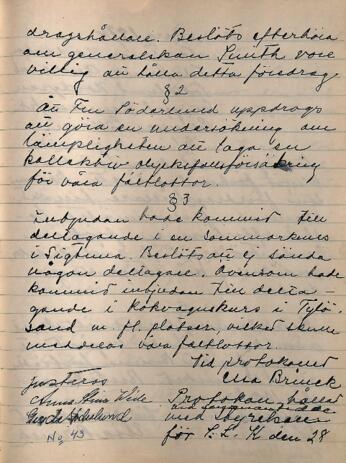 dragshållare. Beslöts efterhöra
om generalskan Smith vore
villig att hålla detta föredrag
§ 2
Åt Frn Söderlund uppdrogs
att göra en undersökning om
lämpligheten att taga en
kollektiv olycksfallsförsäkring
för våra fältlottor.
§ 3
Inbjudan hade kommit till
deltagande i en sommarkurs
i Sigtuna. Beslöts att ej sända
någon deltagare. Ävensom hade
kommit inbjudan till delta-
gande i Kokvagnskurs i Tylö-
sand m. fl. platser, vilket skulle
meddelas våra fältlottor.
Vid protokollet
Brinck
justeras
Anna Stina Wide
Söderlund
No 43
Protokoll, hållet
med styrelsen
för S. L. K. den 28